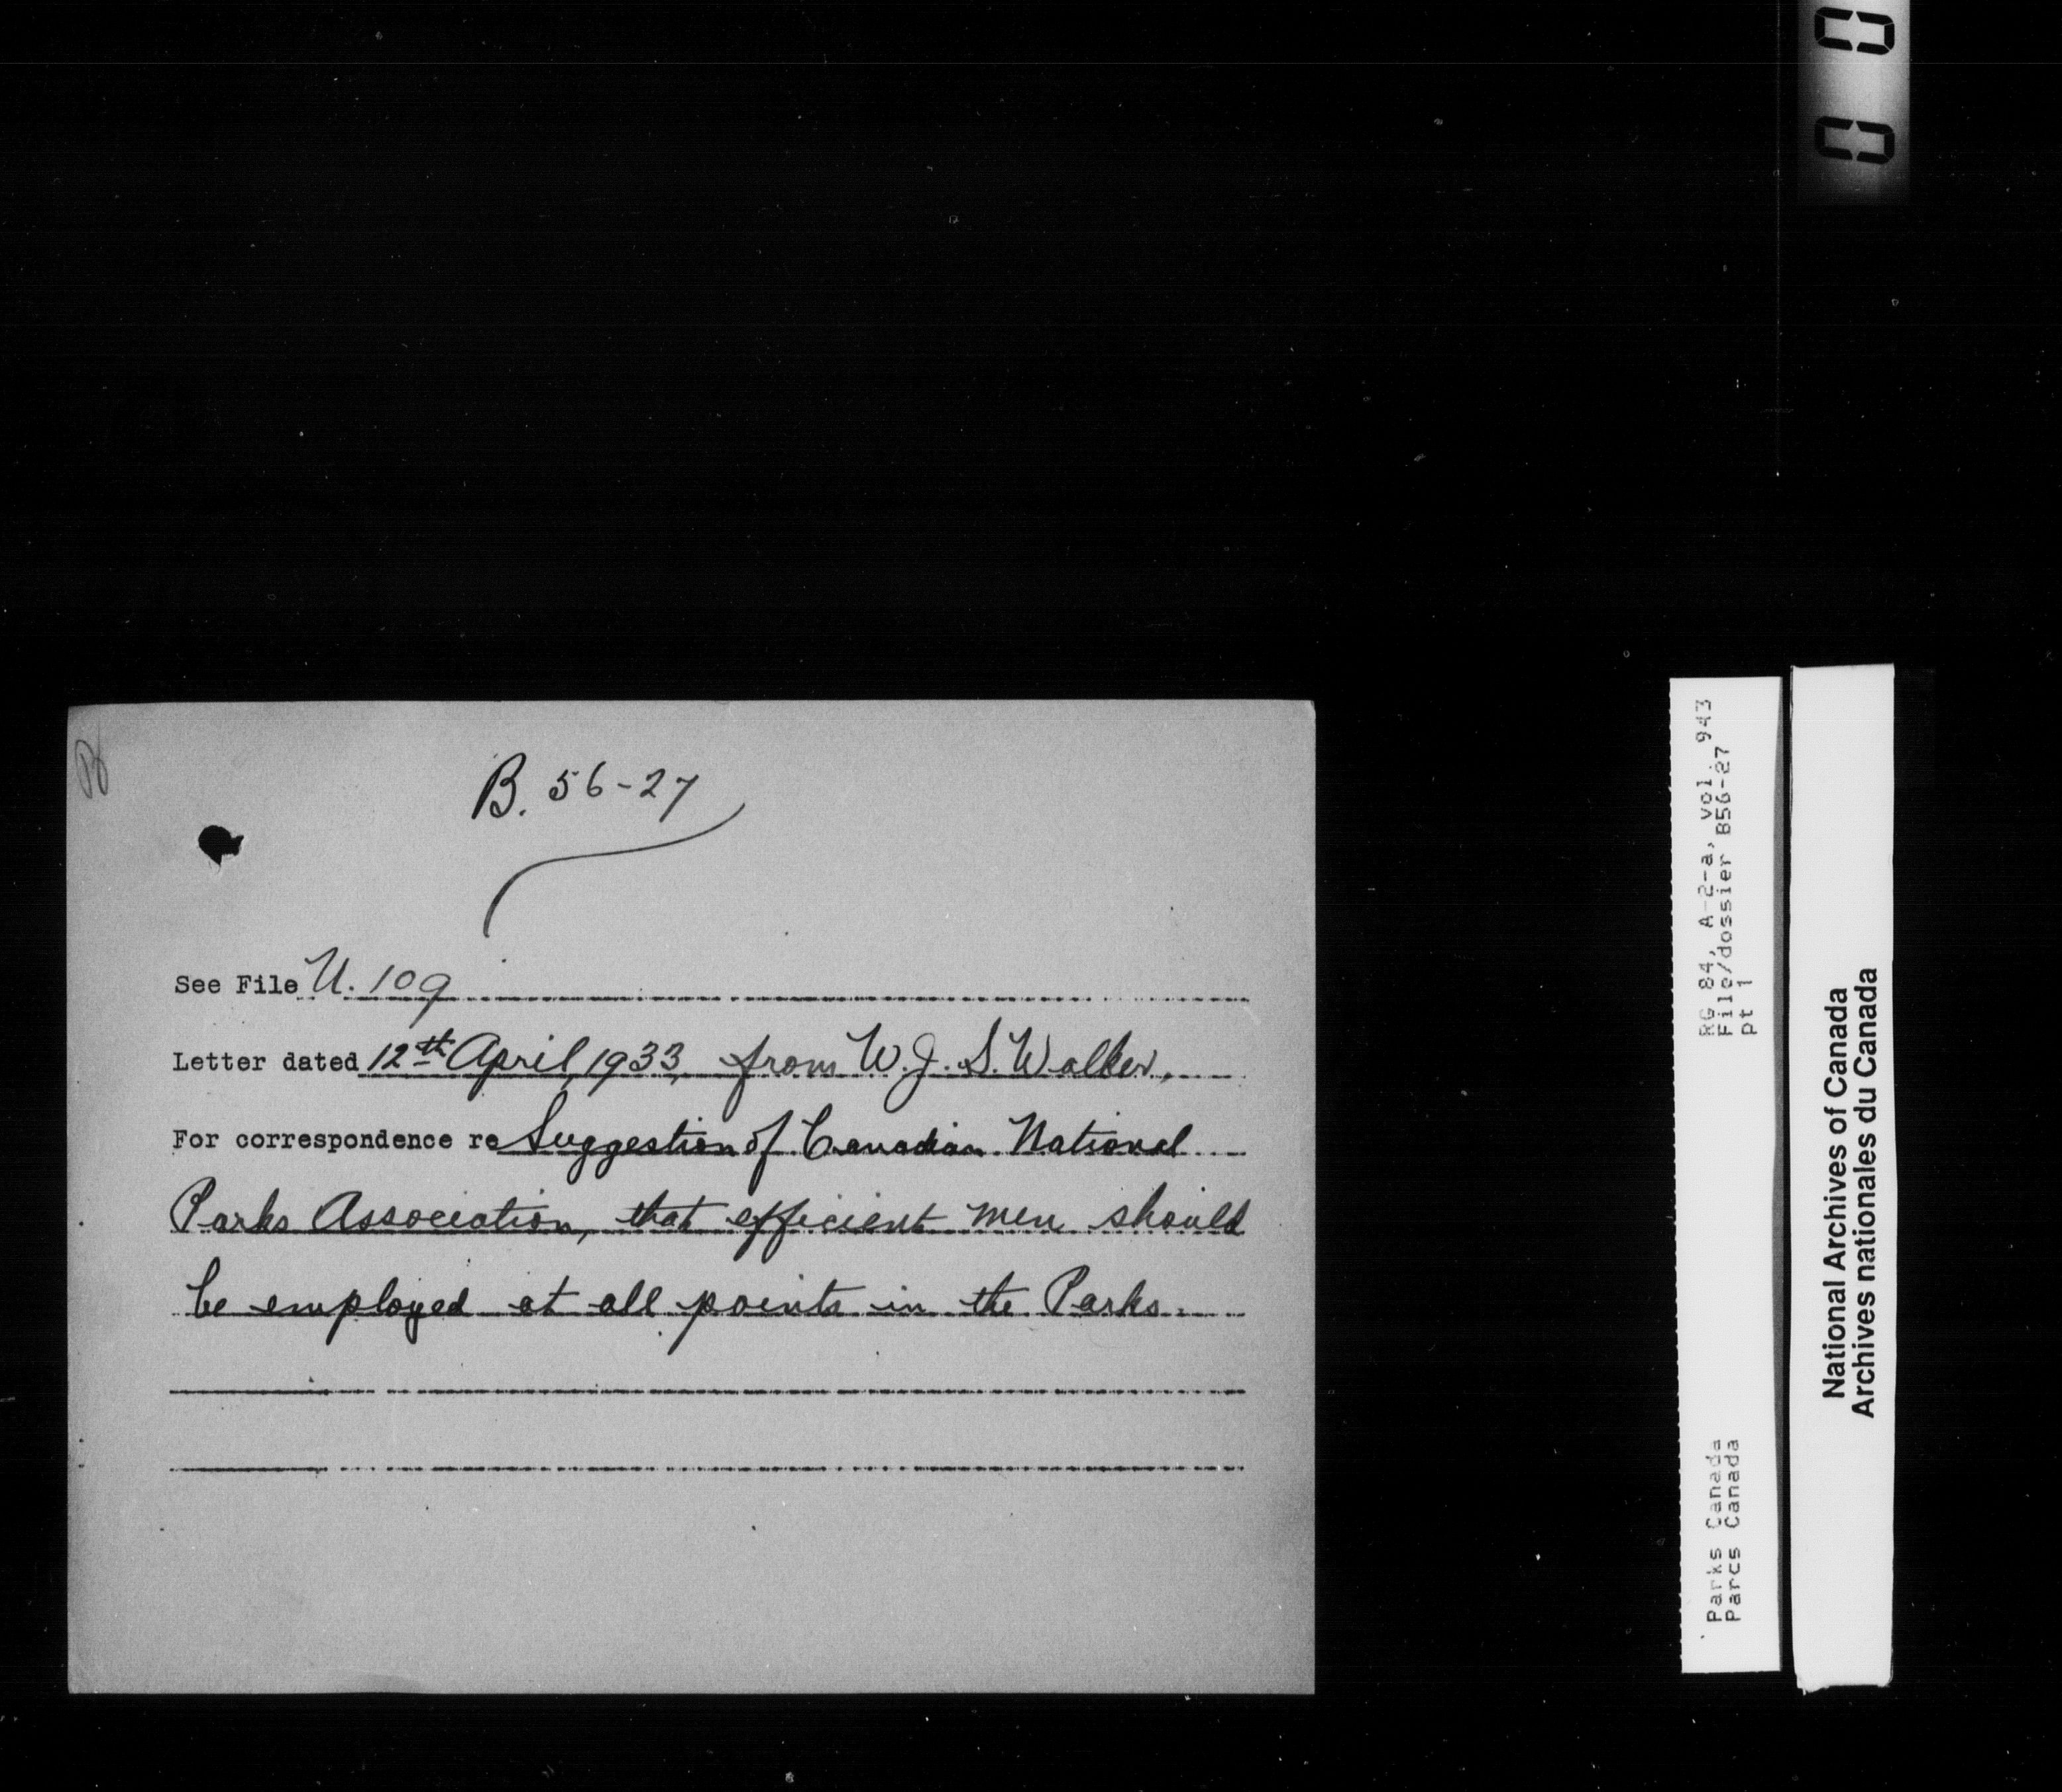 0 0
B
B. 56-27
See File U. 109
Letter dated 12th April, 1933, from W. J. S. Walker,
For correspondence re Suggestion of Canadian National
Parks Association, that efficient men should
be employed at all points in the Parks.
RG 84, A-2-a, vol. 943
File/dossier B56-27
pt 1
Parks Canada
Parcs Canada
National Archives of Canada
Archives nationales du Canada